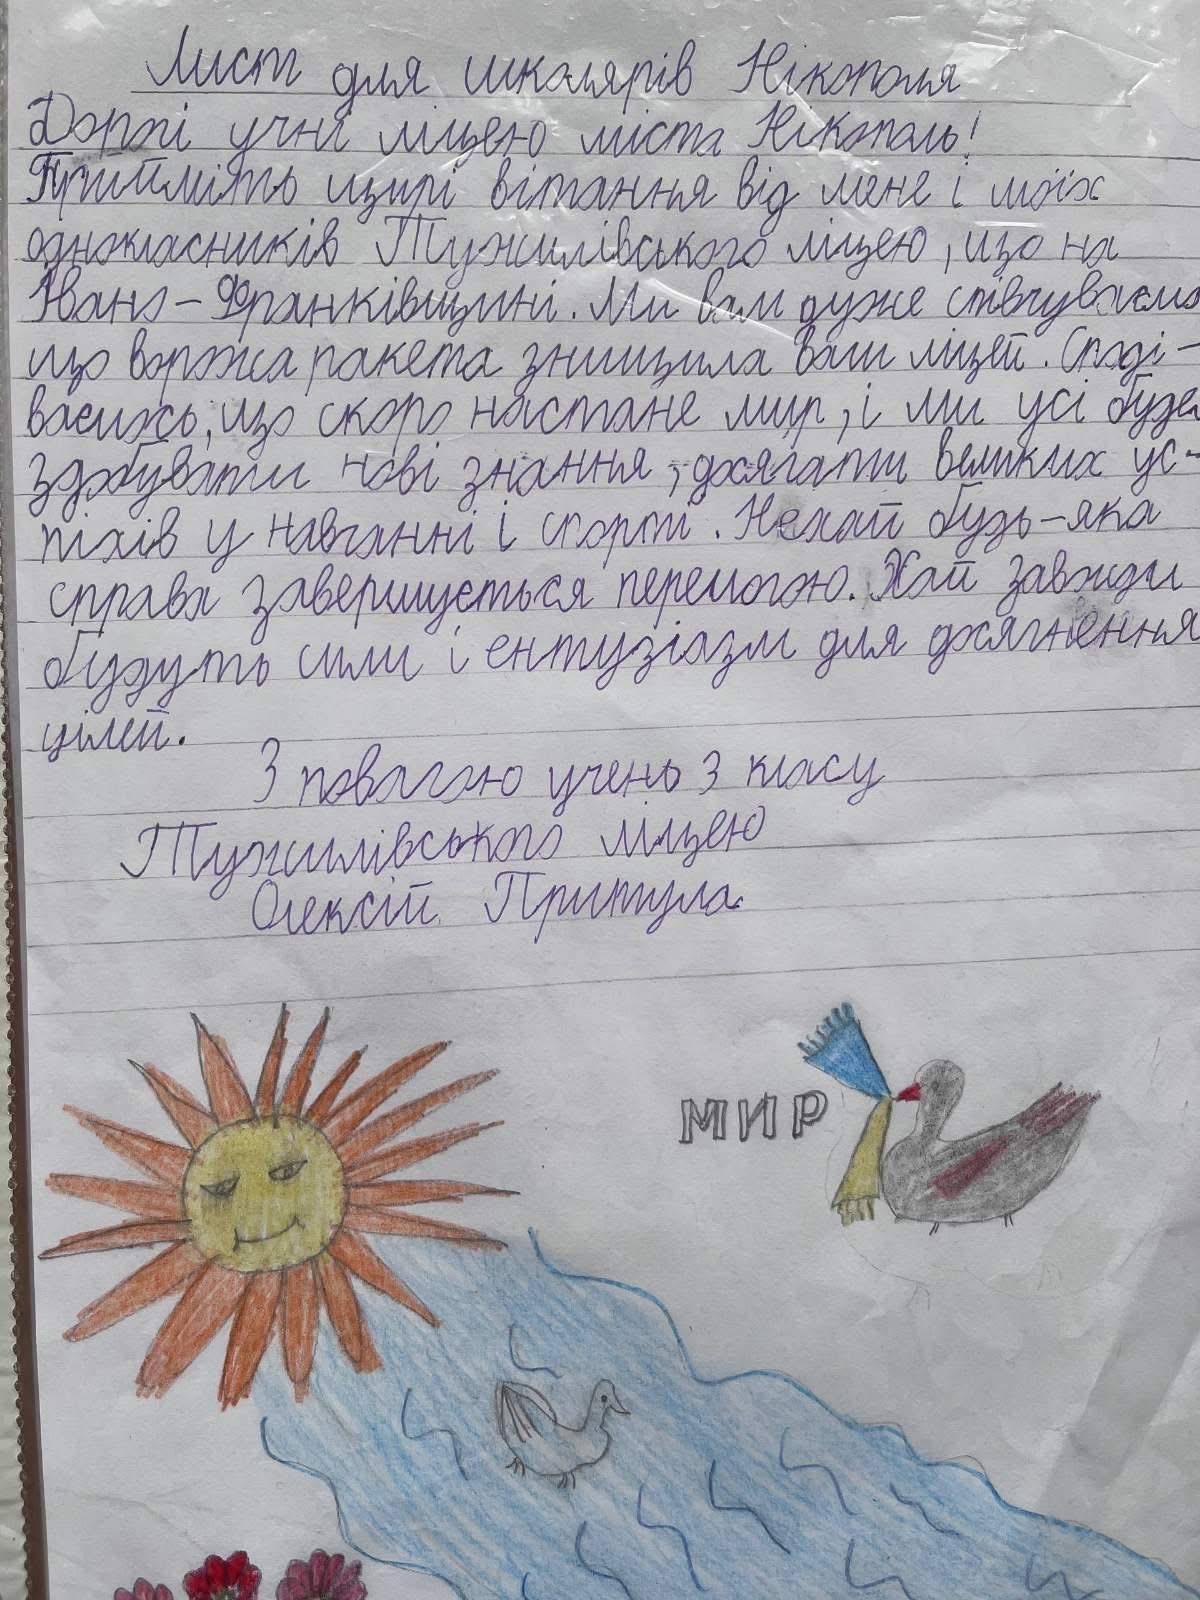 Лист для школярів Нікополя
Дорогі учні ліцею міста Нікополь!
Прийміть щирі вітання від мене і моїх
однокласників Тужилівського ліцею, що на
Івано-Франківщині. Ми вам дуже співчуваємо
що ворожа ракета знищила ваш ліцей. Споді-
ваємось, що скоро настане мир, і ми усі будем
здобувати нові знання, досягати великих ус-
піхів у навчанні і спорті. Нехай будь-яка
справа завершується перемогою. Хай завжди
будуть сили і ентузіазм для досягнення
цілей.
З повагою учень 3 класу
Тужилівського ліцею
Олексій Притула.
МИР